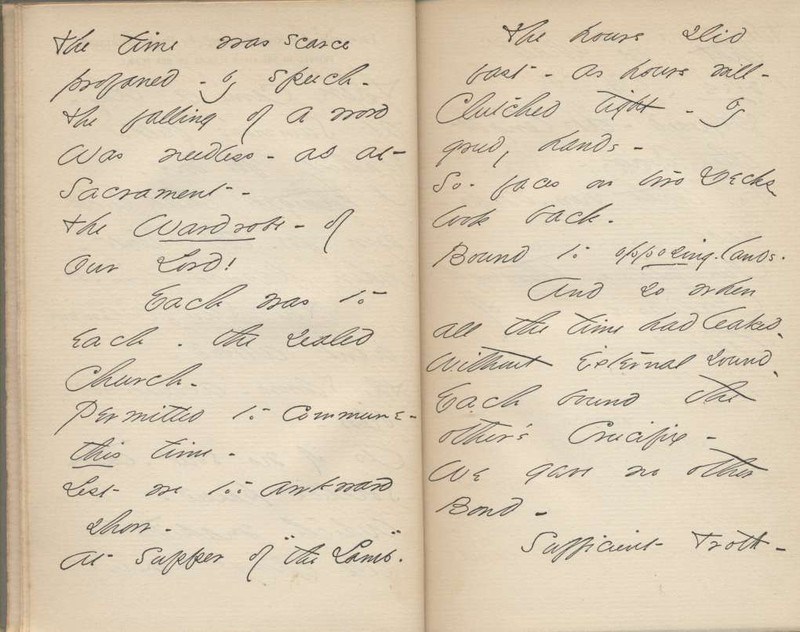 The time was scarce
profaned - by speech -
The falling of a word
Was needless - as at -
Sacrament -
The Wardrobe - of
Our Lord!
Each was to
Each - the sealed
Church -
Permitted to commune -
this time -
Lest we too awkward
show -
At Supper of "the Lamb".
The hours slid
fast - as hours will -
Clutched tight - by
greedy hands -
So - faces on two Decks
look back -
Bound to opposing lands.
And so when
all the time had leaked,
Without external sound,
Each bound the
other's Crucifix -
We gave no other
Bond -
Sufficient Troth -